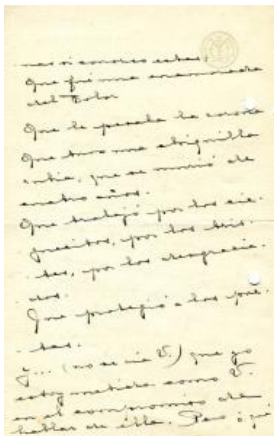 mas si conoces estas,
Que fué una enamorada
del Dolor
Que le pesaba la corona
Que tuvo una chiquilla
rubia, que se murió de
cuatro años.
Que trabajó por los cie-
guecitos, por los tris-
tes, por los desgracia-
dos.
Que protegió a los poe-
tas.
Y... (no se ría V.) que yo
estoy metida como V.
en el compromiso de
hablar de ella. Pero ¿qué